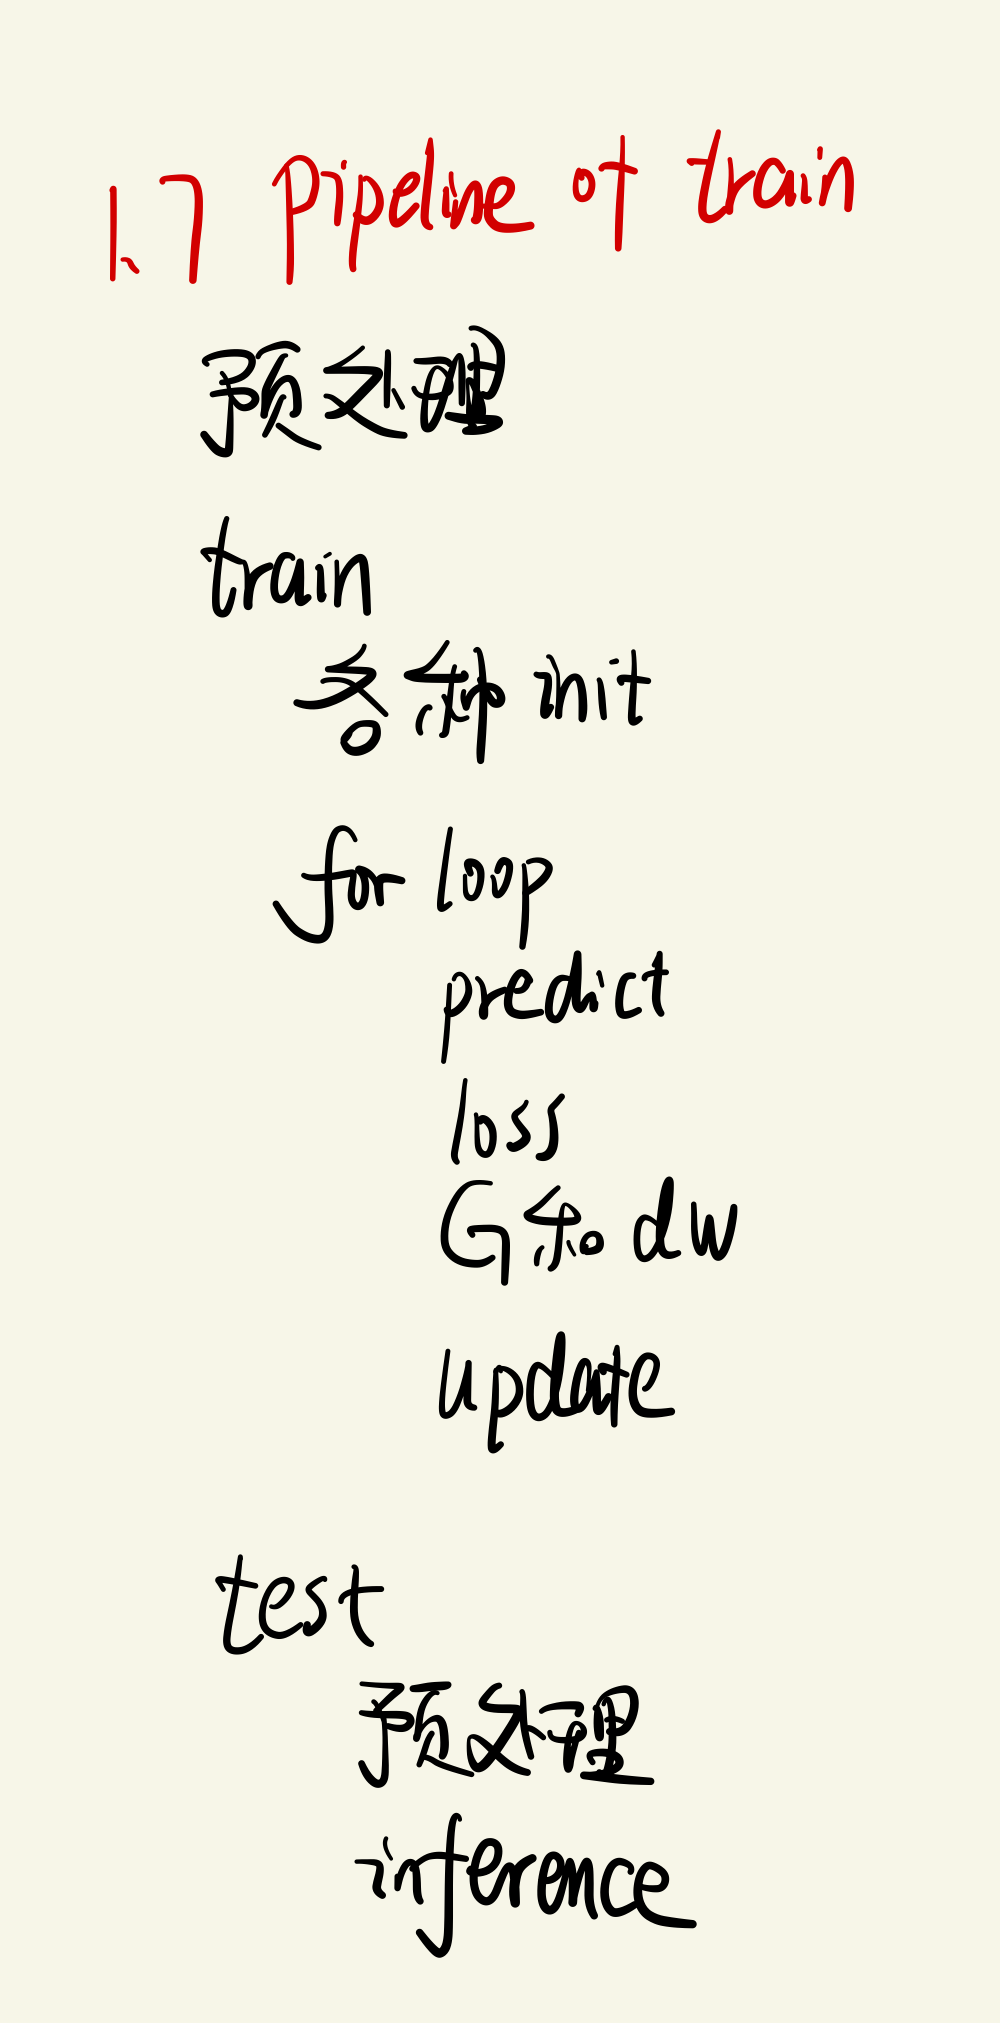 1.7 pipeline of train
预处理
train
各种 init
for loop
predict
loss
G和 dw
update
test
预处理
inference